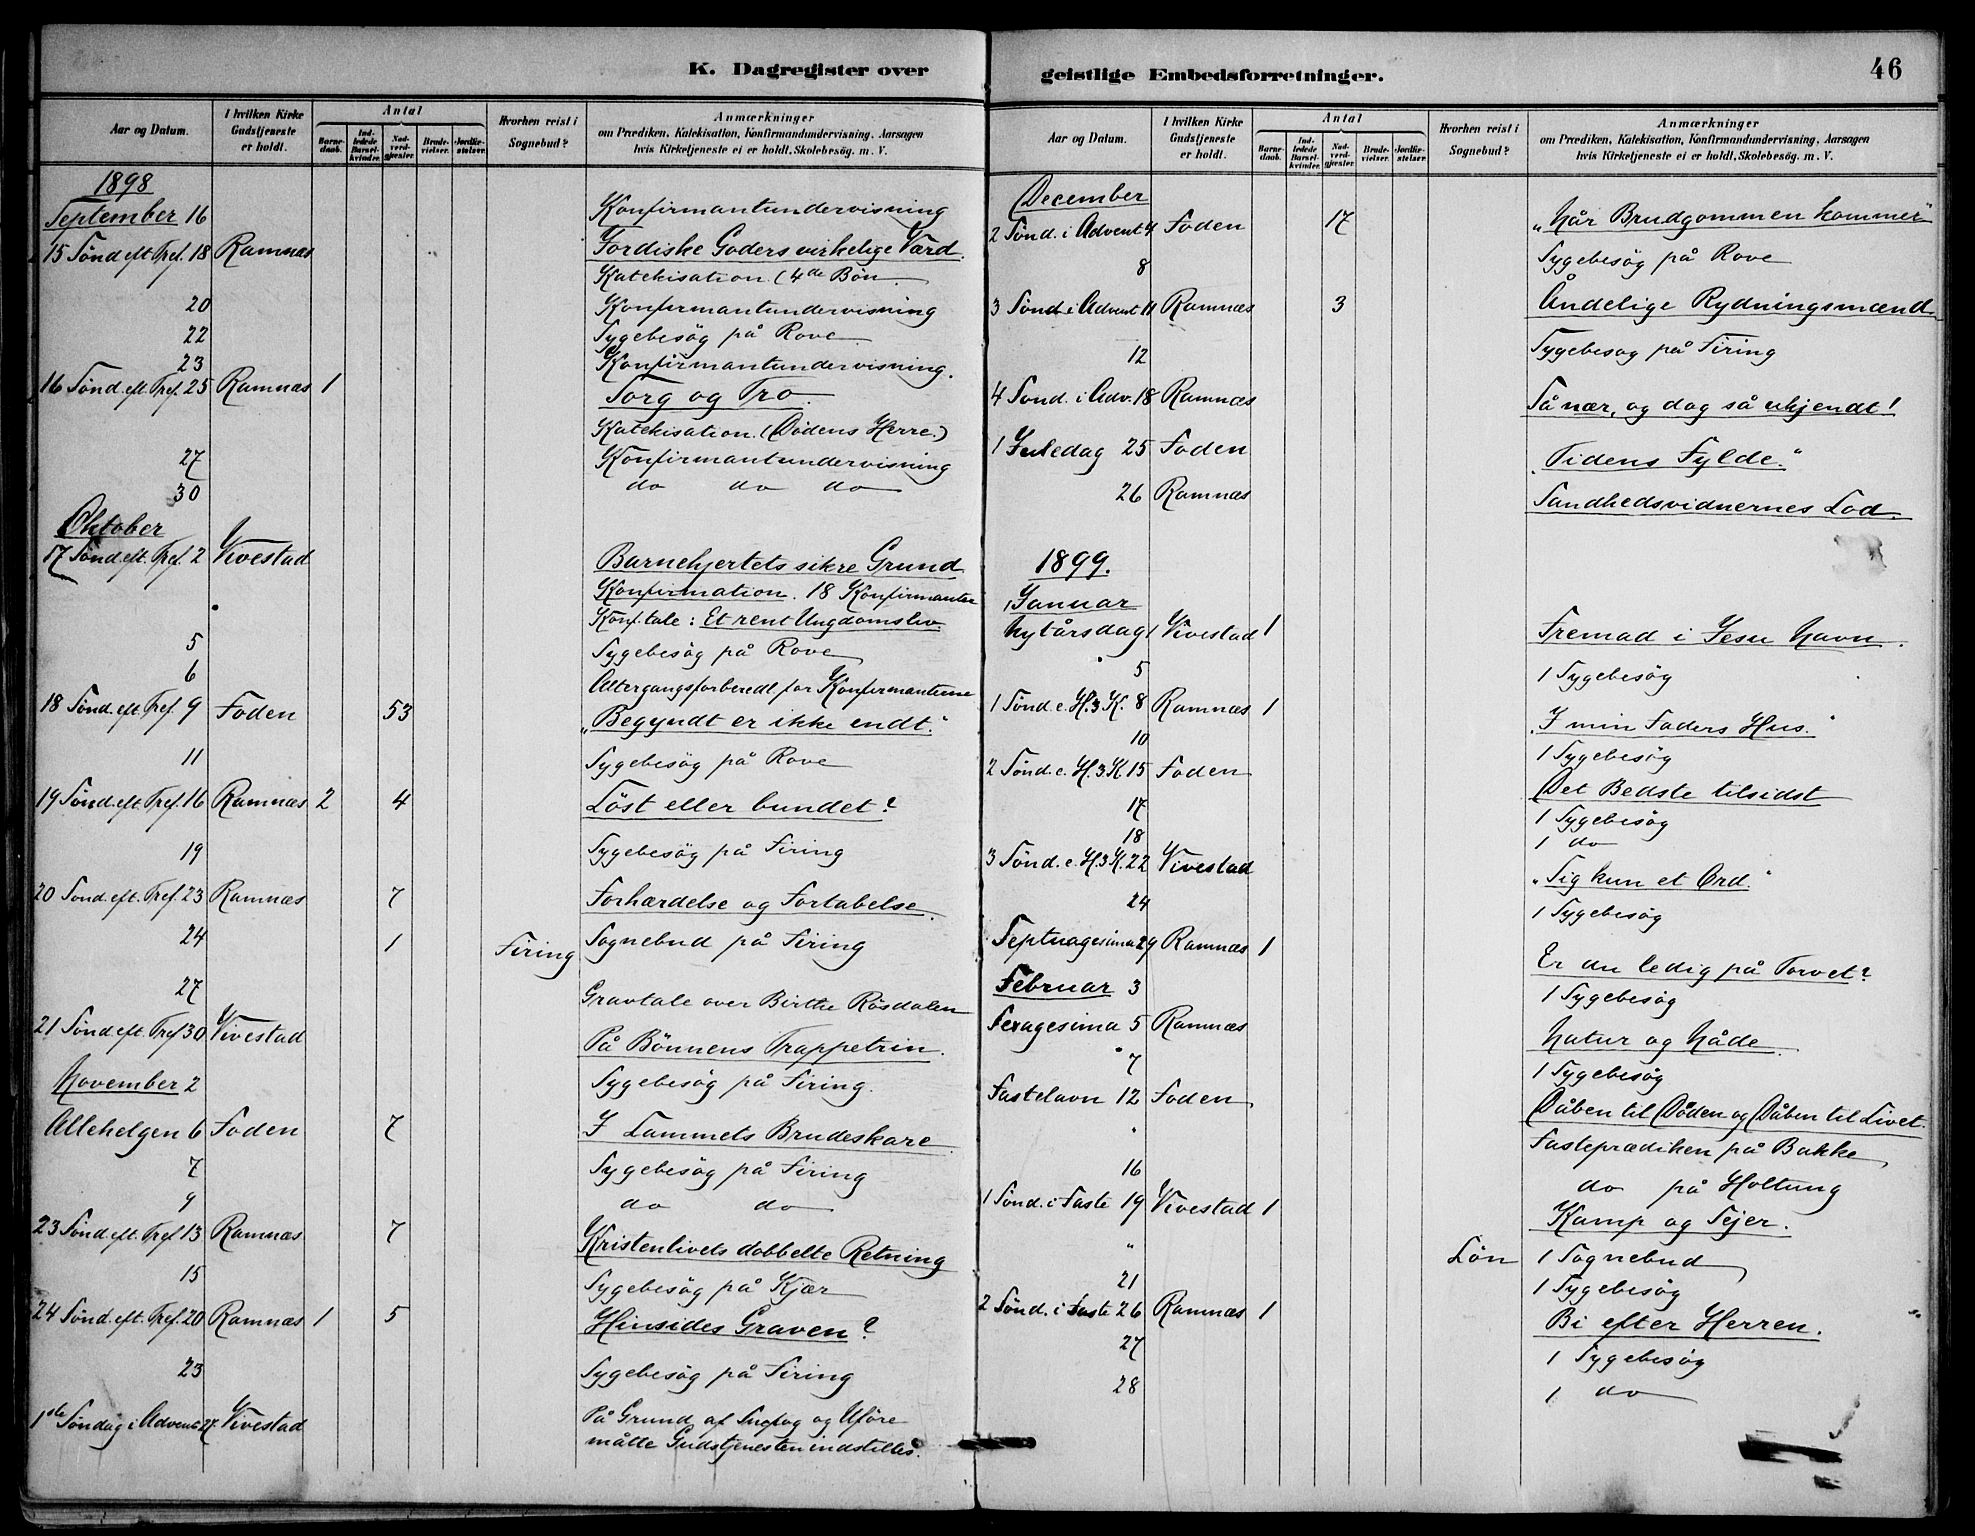 K. Dagregister over
Aar og Datum. I hvilken Kirke Gudstjeneste er holdt. Antal Barnedaab. Indledede Barselkvinder. Nadverdgjester. Brudevielser. Jordfæstelser. Hvorhen reist i Sognebud? Anmærkninger om Prædiken, Katekisation, Konfirmandundervisning, Aarsagen hvis Kirketjeneste ei er holdt, Skolebesøg. m. V.
1898
September 16 Konfirmantundervisning
15 Sønd eft. Tref. 18 Ramnæs Jordiske Goders virkelige Værd.
Katekisation (4de Bøn
20 Konfirmantundervisning
22 Sygebesøg på Rove
23 Konfirmantundervisning.
16 Sønd. eft. Tref. 25 Ramnæs 1 Sorg og Tro.
Katekisation. (Dødens Herre.)
27 Konfirmantundervisning
30 do do do
Oktober
17 Sønd. eft. Tref. 2 Vivestad Barnehjertets sikre Grund
Konfirmation. 18 Konfirmanter
Konf.tale: Et rent Ungdomsliv.
5 Sygebesøg på Rove
6 Altergangsforberedl. for Konfirmanterne
18 Sønd. eft. Tref. 9 Foden 53 „Begyndt er ikke endt."
11 Sygebesøg på Rove
19 Sønd. eft. Tref. 16 Ramnæs 2 4 Løst eller bundet?
19 Sygebesøg på Firing
20 Sønd. eft. Tref. 23 Ramnæs 7 Forhærdelse og Fortabelse.
24 1 Firing Sognebud på Firing
27 Gravtale over Birthe Rösdalen
21 Sønd. eft. Tref. 30 Vivestad På Bønnens Trappetrin.
November 2 Sygebesøg på Firing.
Allehelgen 6 Foden 7 I Lammets Brudeskare.
7 Sygebesøg på Firing
9 do do
23 Sønd. eft. Tref. 13 Ramnæs 7 Kristenlivets dobbelte Retning
15 Sygebesøg på Kjær
24 Sønd. eft. Tref. 20 Ramnæs 1 5 Hinsides Graven?
23 Sygebesøg på Firing
1ste Søndag i Advent 27. Vivestad På Grund af Snefog og Uføre
måtte Gudstjenesten indstilles.
geistlige Embedsforretninger. 46
Aar og Datum. I hvilken Kirke Gudstjeneste er holdt. Antal Barnedaab. Indledede Barselkvinder. Nadverdgjester. Brudevielser. Jordfæstelser. Hvorhen reist i Sognebud? Anmærkninger om Prædiken, Katekisation, Konfirmandundervisning, Aarsagen hvis Kirketjeneste ei er holdt, Skolebesøg. m. V.
December
2 Sønd. i Advent 4 Foden 17 „Når Brudgommen kommer"
8 Sygebesøg på Rove
3 Sønd. i Advent 11 Ramnæs 3 Åndelige Rydningsmænd.
12 Sygebesøg på Firing
4 Sønd. i Adv. 18 Ramnæs Så nær, og dog så ukjendt!
1 Juledag 25 Foden „Tidens Fylde."
26 Ramnæs Sandhedsvidnernes Lod.
1899.
Januar
Nytårsdag 1 Vivestad 1 Fremad i Jesu Navn.
5 1 Sygebesøg
1 Sønd. e. H. 3 K. 8 Ramnæs 1 „I min Faders Hus."
10 1 Sygebesøg
2 Sønd. e. H. 3 K. 15 Foden Det Bedste tilsidst
17 1 Sygebesøg
18 1 do
3 Sønd. e. H. 3 K. 22 Vivestad „Sig kun et Ord."
24 1 Sygebesøg
Septuagesima 29 Ramnæs 1 Er du ledig på Torvet?
Februar 3 1 Sygebesøg
Sexagesima 5 Ramnæs Natur og Nåde.
" 7 1 Sygebesøg
Fastelavn 12 Foden Dåben til Døden og Dåben til Livet.
" Fasteprædiken på Bakke
16 do på Holtung
1 Sønd. i Faste 19 Vivestad 1 Kamp og Sejer.
" Lön 1 Sognebud
21 1 Sygebesøg
2 Sønd. i Faste 26 Ramnæs 1 Bi efter Herren.
27 1 Sygebesøg
28 1 do